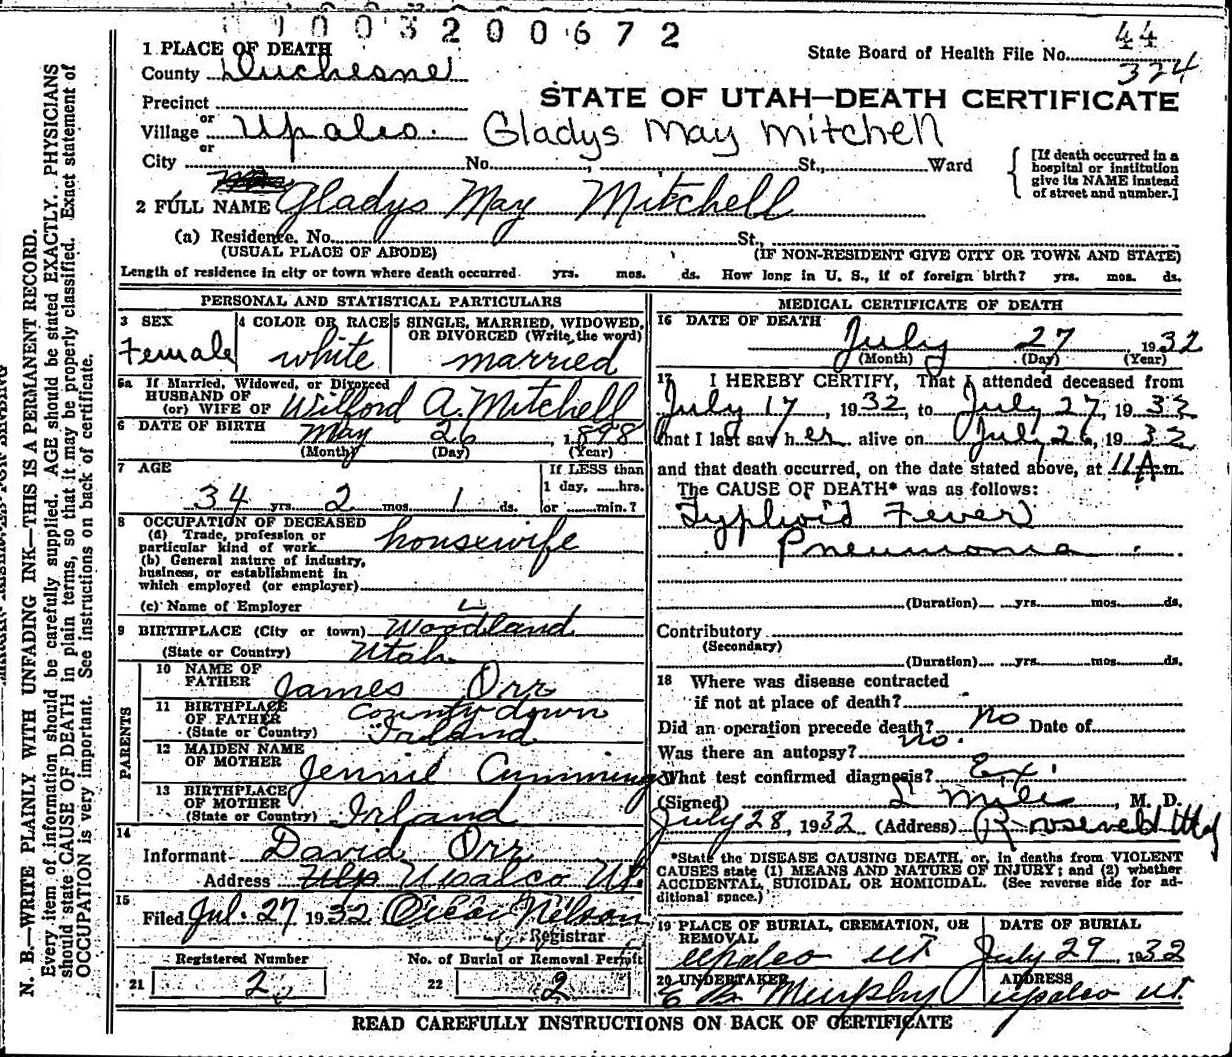 0 0 3 2 0 0 6 7 2
1 PLACE OF DEATH
State Board of Health File No. 44
324
County Duchesne
STATE OF UTAH—DEATH CERTIFICATE
Precinct
or
Village Upalco. Gladys May Mitchell
or
City No. St., Ward
[If death occurred in a
hospital or institution
give its NAME instead
of street and number.]
2 FULL NAME Gladys May Mitchell
(a) Residence. No. St.,
(USUAL PLACE OF ABODE) (IF NON-RESIDENT GIVE CITY OR TOWN AND STATE)
Length of residence in city or town where death occurred yrs. mos. ds. How long in U. S., if of foreign birth? yrs. mos. ds.
PERSONAL AND STATISTICAL PARTICULARS
3 SEX
Female
4 COLOR OR RACE
white
5 SINGLE, MARRIED, WIDOWED,
OR DIVORCED (Write the word)
married
5a If Married, Widowed, or Divorced
HUSBAND OF
(or) WIFE OF Wilford A. Mitchell
6 DATE OF BIRTH May 26, 1898
(Month) (Day) (Year)
7 AGE
34 yrs. 2 mos. 1 ds.
If LESS than
1 day, hrs.
or min.?
8 OCCUPATION OF DECEASED
(a) Trade, profession or
particular kind of work housewife
(b) General nature of industry,
business, or establishment in
which employed (or employer)
(c) Name of Employer
9 BIRTHPLACE (City or town) Woodland
(State or Country) Utah
PARENTS
10 NAME OF
FATHER James Orr
11 BIRTHPLACE
OF FATHER
(State or Country)
County down
Irland
12 MAIDEN NAME
OF MOTHER Jennie Cummings
13 BIRTHPLACE
OF MOTHER
(State or Country) Irland
14
Informant David Orr
Address Upalco Ut.
15
Filed Jul. 27 1932 Oscar Nelson
Registrar
Registered Number
21 2
No. of Burial or Removal Permit
22 2
MEDICAL CERTIFICATE OF DEATH
16 DATE OF DEATH
July 27 1932
(Month) (Day) (Year)
17 I HEREBY CERTIFY, That I attended deceased from
July 17, 1932, to July 27, 1932
that I last saw her alive on July 26, 1932
and that death occurred, on the date stated above, at 11 A m.
The CAUSE OF DEATH* was as follows:
Typhoid Fever
Pneumonia
(Duration) yrs. mos. ds.
Contributory
(Secondary)
(Duration) yrs. mos. ds.
18 Where was disease contracted
if not at place of death?
Did an operation precede death? no Date of
Was there an autopsy? no.
What test confirmed diagnosis? Ex.
(Signed) L Miles, M. D.
July 28, 1932 (Address) Roosevelt Utah
*State the DISEASE CAUSING DEATH, or, in deaths from VIOLENT
CAUSES state (1) MEANS AND NATURE OF INJURY; and (2) whether
ACCIDENTAL, SUICIDAL OR HOMICIDAL. (See reverse side for ad-
ditional space.)
19 PLACE OF BURIAL, CREMATION, OR
REMOVAL
Upalco UT
DATE OF BURIAL
July 29 1932
20 UNDERTAKER
E B Murphy
ADDRESS
Upalco UT.
READ CAREFULLY INSTRUCTIONS ON BACK OF CERTIFICATE
N. B.—WRITE PLAINLY WITH UNFADING INK—THIS IS A PERMANENT RECORD.
Every item of information should be carefully supplied. AGE should be stated EXACTLY. PHYSICIANS
should state CAUSE OF DEATH in plain terms, so that it may be properly classified. Exact statement of
OCCUPATION is very important. See instructions on back of certificate.